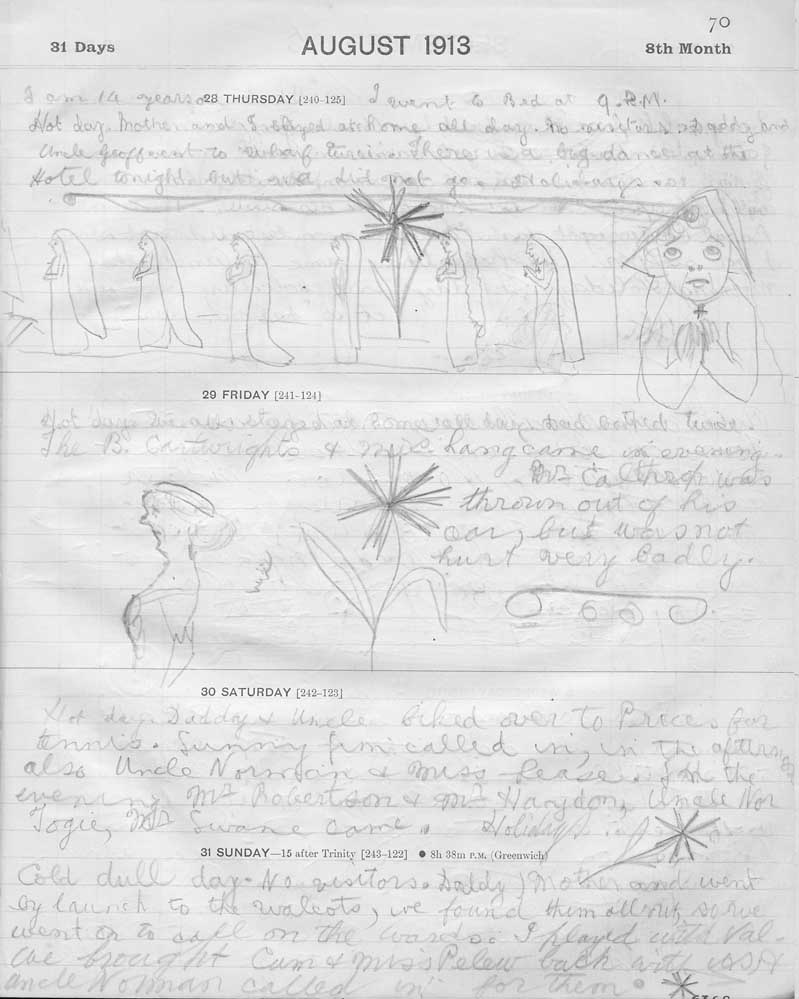 70
31 Days AUGUST 1913 8th Month
I am 14 years 28 THURSDAY [240-125] I went to Bed at 9.P.M.
Hot day. Mother and I stayed at home all day. No visitors. and
Uncle Geoff went to wharf twice. There is a big dance at the
Hotel tonight but we did not go.
29 FRIDAY [241-124]
Hot day. We all stayed at home all day. Had bathed twice.
The B. Cartwrights & Mrs. Lang came in evening.
Mr Calthrop was
thrown out of his
car, but was not
hurt very badly.
30 SATURDAY [242-123]
Hot day. Daddy & Uncle biked over to Prices for
tennis. Sunny Jim called in, in the afternoon
also Uncle Norman & Miss Lease. In the
evening Mr Robertson & Mr Haydon, Uncle Nor
Togie, Mr Swane came. Holidays
31 SUNDAY—15 after Trinity [243-122] ● 8h 38m P.M. (Greenwich)
Cold dull day. No visitors. Daddy, Mother and went
by launch to the Walcots, we found them all out, so we
went on to call on the Wards. I played with Val-
We brought Cam & Miss Pelew back with us, &
Uncle Norman called in for them.